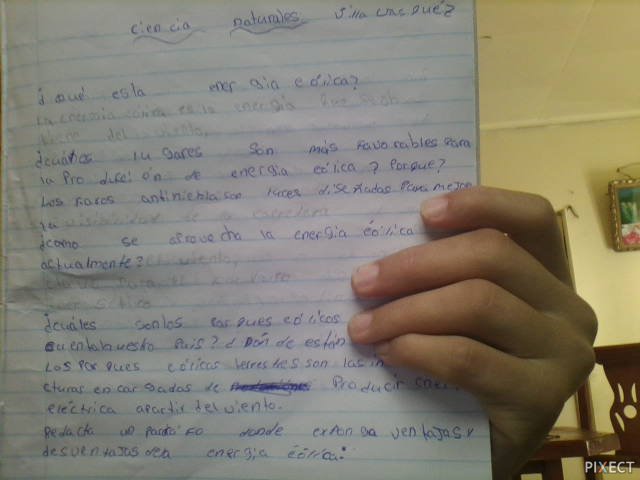 ciencia naturales Villa vasquéz
¿qué esla energia eólica?
La energia eólica es la energia que se ob
tiene del viento,
¿cuáles lugares son más favorables para
la Producción de energia eólica? Porque?
Los faros antiniebla son luces diseñadas Para mejor
la visibilidad de la carretera
¿como se aprovecha la energía éólica
actualmente? El viento,
¿cuáles sonlos parques eólicos
cuentalanuestro Pais? d Dónde están
Los Parques eólicos terrestres son las in
eturas encargadas de Producir ener
eléctrica apartir del viento.
Redacta un Parráfo donde exponga ventajas y
desventajas dela energia éólica.
PIXECT